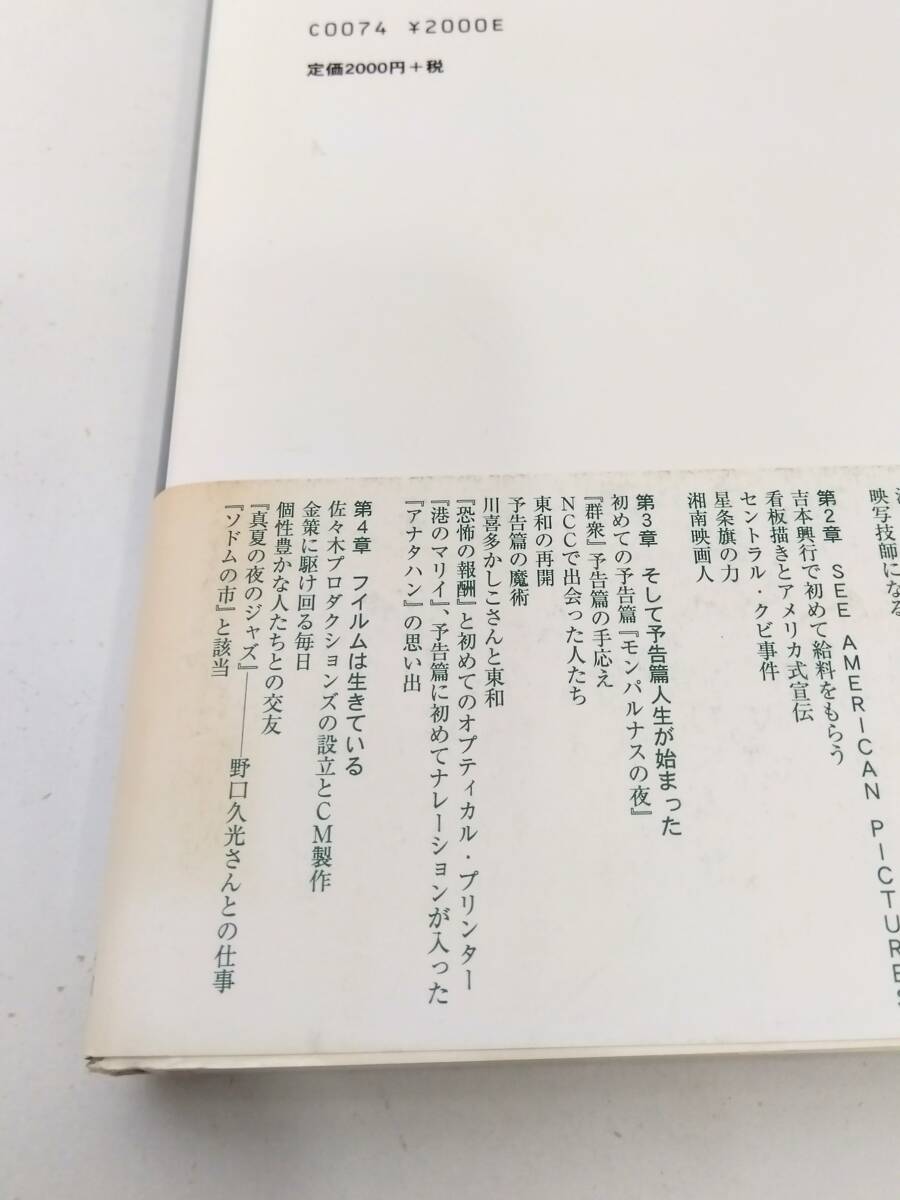 C0074 ¥2000E
定価2000円+税
映写技師になる
第2章 SEE AMERICAN PICTURES
吉本興行で初めて給料をもらう
看板描きとアメリカ式宣伝
セントラル・クビ事件
星条旗の力
湘南映画人
第3章 そして予告篇人生が始まった
初めての予告篇『モンパルナスの夜』
『群衆』予告篇の手応え
NCCで出会った人たち
東和の再開
予告篇の魔術
川喜多かしこさんと東和
『恐怖の報酬』と初めてのオプティカル・プリンター
『港のマリイ』、予告篇に初めてナレーションが入った
『アナタハン』の思い出
第4章 フイルムは生きている
佐々木プロダクションズの設立とCM製作
金策に駆け回る毎日
個性豊かな人たちとの交友
『真夏の夜のジャズ』――野口久光さんとの仕事
『ソドムの市』と該当